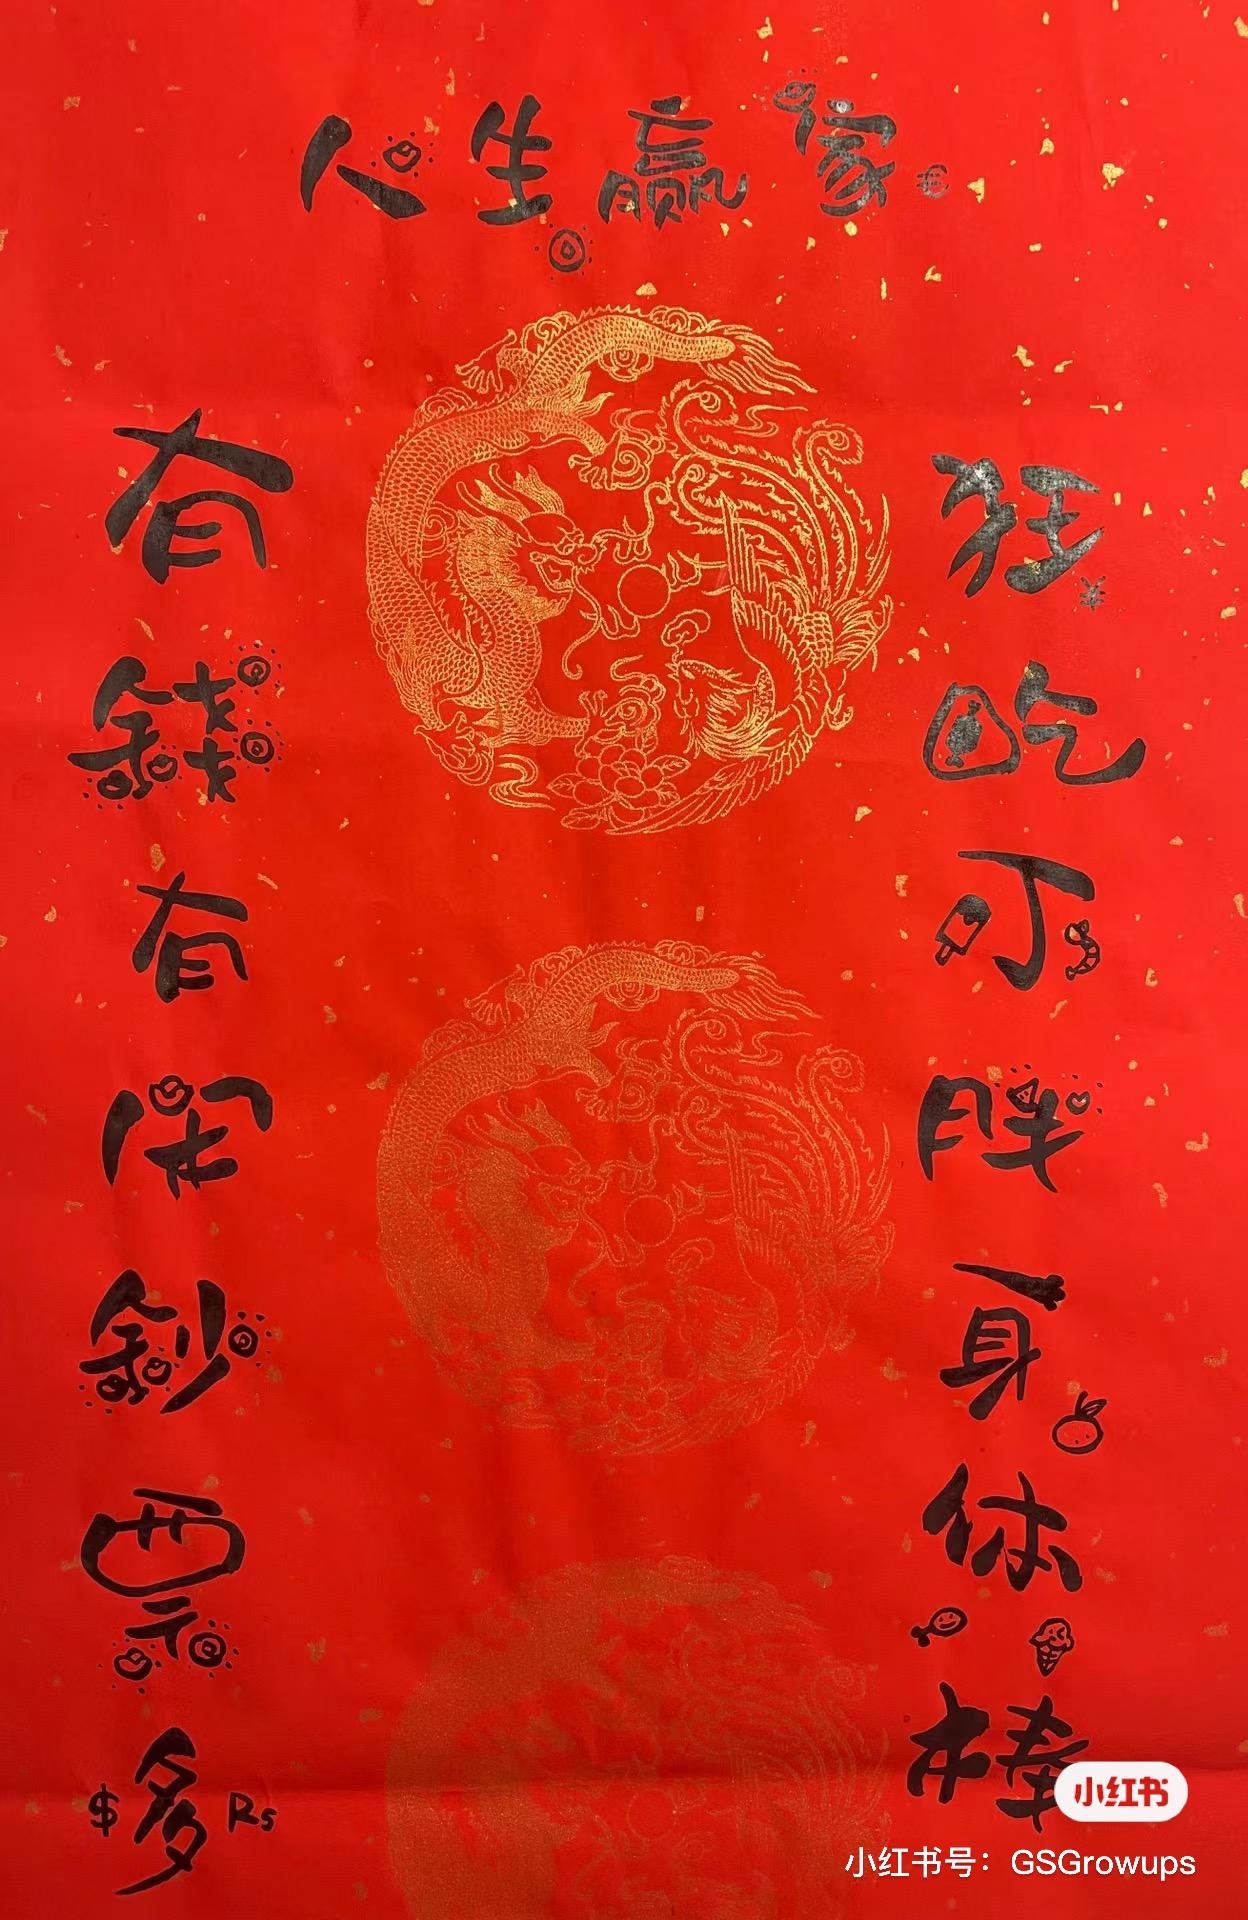 人生赢家
狂吃不胖身体棒
有錢有闲鈔票多
¥
$
Rs
小红书
小红书号：GSGrowups